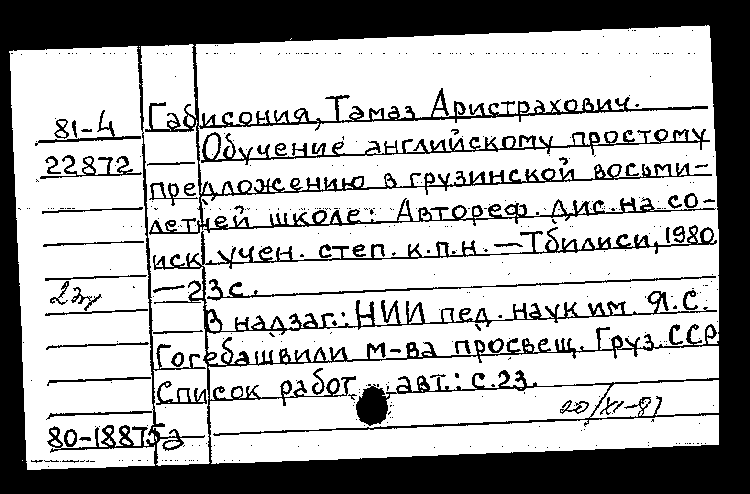 81-4
22872
Габисония, Тамаз Аристрахович.
Обучение английскому простому
предложению в грузинской восьми-
летней школе: Автореф. дис. на со-
иск. учен. степ. к.п.н. — Тбилиси, 1980
— 23 с.
В надзаг.: НИИ пед. наук им. Я.С.
Гогебашвили м-ва просвещ. Груз. ССР
Список работ авт.: с.23.
20/XI-81
80-18875а